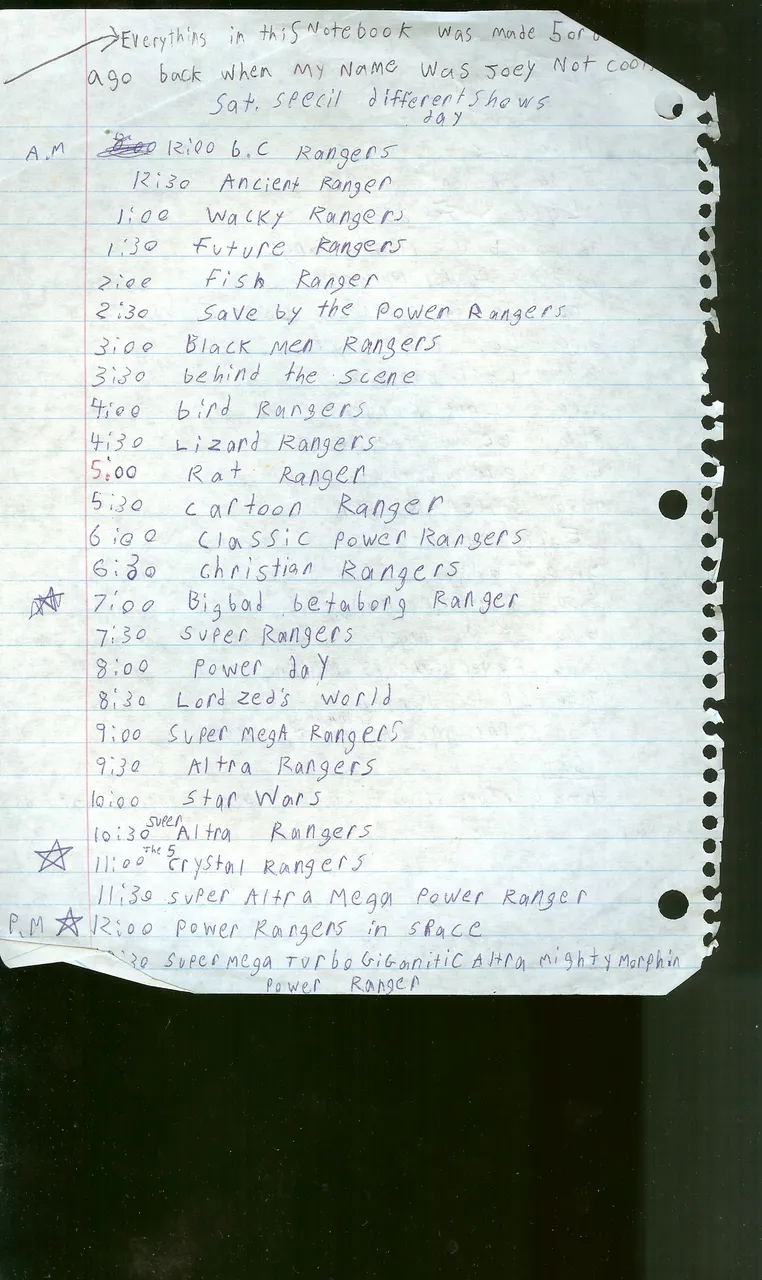 Everything in this Notebook was made 5 or
ago back when My Name was Joey Not
Sat. specil different shows
day
A.M 12:00 b.c Rangers
12:30 Ancient Ranger
1:00 Wacky Rangers
1:30 Future Rangers
2:00 Fish Ranger
2:30 Save by the power Rangers
3:00 Black men Rangers
3:30 behind the scene
4:00 bird Rangers
4:30 Lizard Rangers
5:00 Rat Ranger
5:30 cartoon Ranger
6:00 Classic power Rangers
6:30 christian Rangers
7:00 Bigbad betaborg Ranger
7:30 super Rangers
8:00 power day
8:30 Lord zed's world
9:00 Super megA Rangers
9:30 Altra Rangers
10:00 Star Wars
10:30 super Altra Rangers
11:00 The 5 crystal Rangers
11:30 super Altra Mega power Ranger
P.M 12:00 power Rangers in space
:30 super mega Turbo Giganitic Altra mighty Morphin
power Ranger